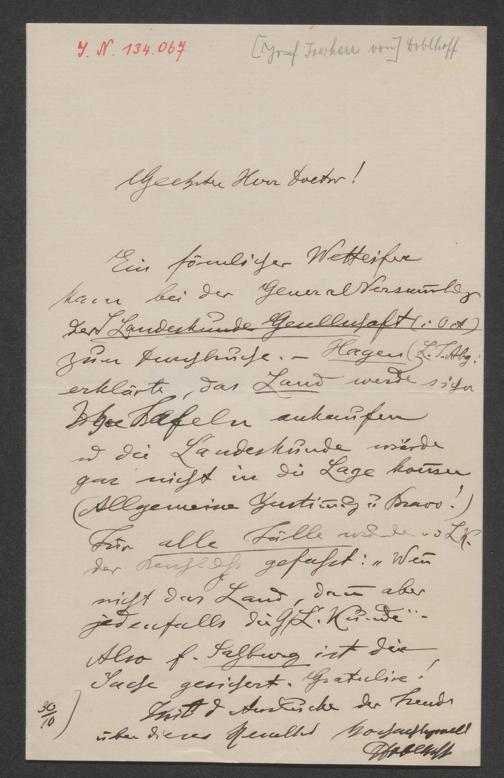 J. N. 134.067
[Josef Freiherr von] Doblhoff
Geehrter Herr Doctor!
Ein förmlicher Wetteifer
kam bei der General Versammlg
der Landeskunde Gesellschaft (: Oct)
zum Durchbruche. – Hagen (L. T. Abg:
erklärte, das Land werde sicher
Tafeln ankaufen
u die Landeskunde würde
gar nicht in die Lage kommen
(Allgemeine Zustimmg u Bravo!)
Für alle Fälle wurde v. d. L.K.
der gefasst: „Wenn
nicht das Land, dann aber
jedenfalls die G. L. Kunde“ –
Also f. Salzburg ist die
Sache gesichert. Gratulire!
30/10) Mit d Ausdrucke der Freude
über dieses Resultat hochachtungsvoll
Doblhoff